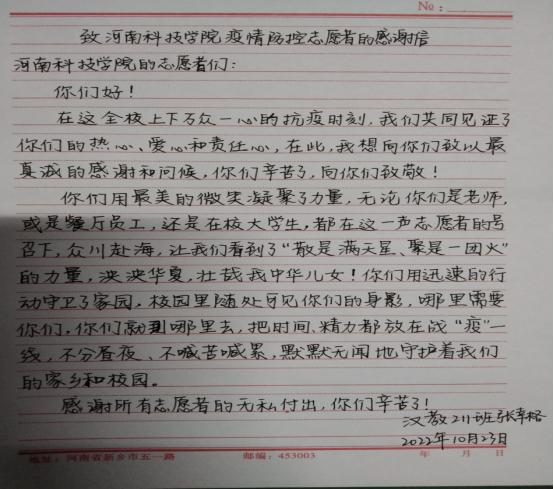 No:
致河南科技学院疫情防控志愿者的感谢信
河南科技学院的志愿者们:
你们好!
在这全校上下万众一心的抗疫时刻,我们共同见证了
你们的热心、爱心和责任心,在此,我想向你们致以最
真诚的感谢和问候,你们辛苦了,向你们致敬!
你们用最美的微笑凝聚了力量,无论你们是老师,
或是餐厅员工,还是在校大学生,都在这一声志愿者的号
召下,众川赴海,让我们看到了“散是满天星、聚是一团火”
的力量,泱泱华夏,壮哉我中华儿女!你们用迅速的行
动守卫了家园,校园里随处可见你们的身影,哪里需要
你们,你们就到哪里去,把时间、精力都放在战“疫”一
线,不分昼夜、不喊苦喊累,默默无闻地守护着我们
的家乡和校园。
感谢所有志愿者的无私付出,你们辛苦了!
汉教211班张幸格
2022年10月23日
地址:河南省新乡市五一路 邮编:453003 年 月 日